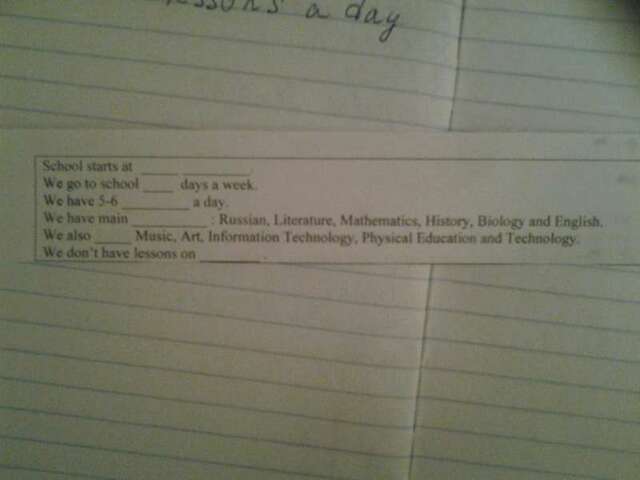 lessons a day
School starts at ____ ________.
We go to school ____ days a week.
We have 5-6 _________ a day.
We have main __________ : Russian, Literature, Mathematics, History, Biology and English.
We also _____ Music, Art, Information Technology, Physical Education and Technology.
We don't have lessons on ________.